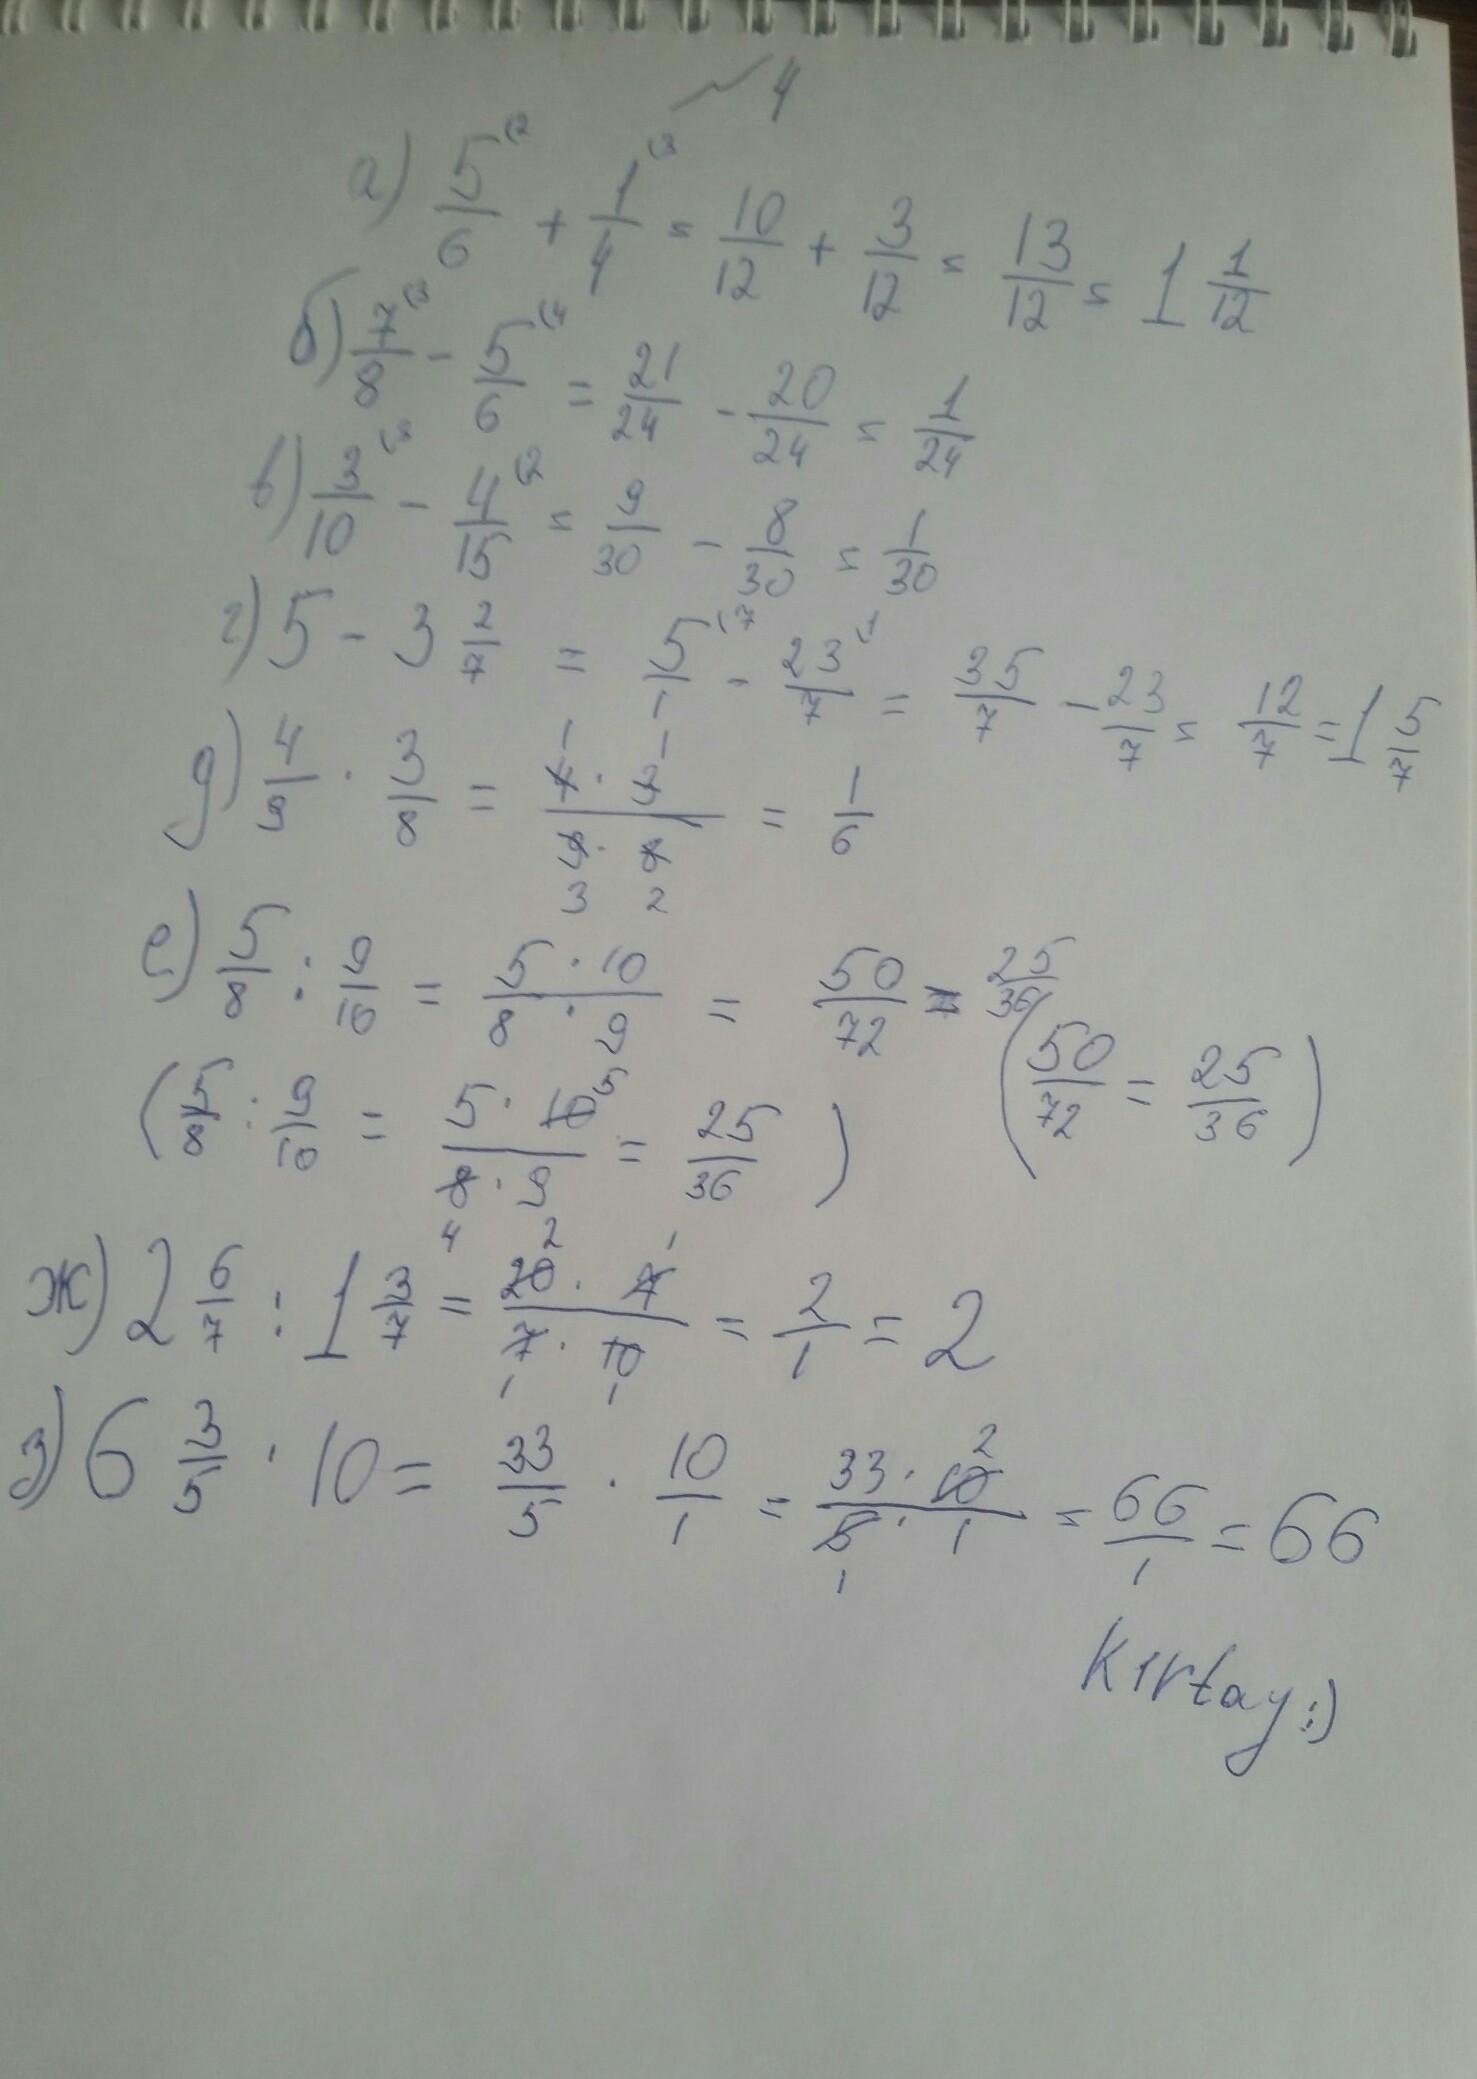 ~ 4
а) 5/6 (2 + 1/4 (3 = 10/12 + 3/12 = 13/12 = 1 1/12
б) 7/8 (3 - 5/6 (4 = 21/24 - 20/24 = 1/24
в) 3/10 (3 - 4/15 (2 = 9/30 - 8/30 = 1/30
г) 5 - 3 2/7 = 5/1 (7 - 23/7 (1 = 35/7 - 23/7 = 12/7 = 1 5/7
1 1
д) 4/9 · 3/8 = 4 · 3 / 9 · 8 = 1/6
3 2
е) 5/8 : 9/10 = 5 · 10 / 8 · 9 = 50/72 = 25/36
(50/72 = 25/36)
(5/8 : 9/10 = 5 · 10 5 / 8 · 9 = 25/36)
4
2 1
ж) 2 6/7 : 1 3/7 = 20 · 7 / 7 · 10 = 2/1 = 2
1 1
2
з) 6 3/5 · 10 = 33/5 · 10/1 = 33 · 10 / 5 · 1 = 66/1 = 66
1
Kırtay :)